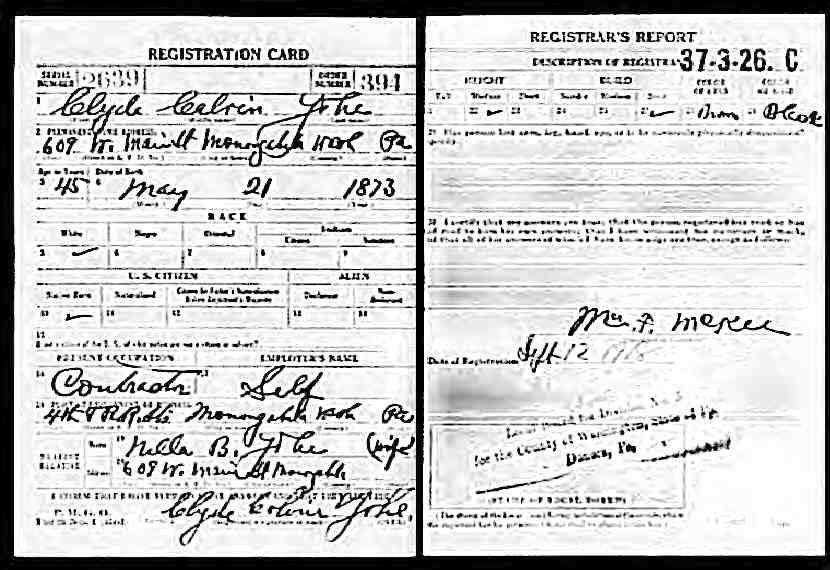 REGISTRATION CARD
SERIAL NUMBER 2639 ORDER NUMBER 394
1 Clyde Calvin Yohe
2 PERMANENT HOME ADDRESS
609 W. Main St Monongahela Wash Pa
Age in Years Date of Birth
3 45 4 May 21 1873
RACE
White Negro Oriental Indian
Citizen
5 ✓ 6 7 8 9
U. S. CITIZEN ALIEN
Native Born Naturalized Citizen by Father's Naturalization Before Registrant's Majority Declarant Non-declarant
10 ✓ 11 12 13 14
15
PRESENT OCCUPATION EMPLOYER'S NAME
16 Contractor 17 Self
4th & RR Sts Monongahela Wash Pa
NEAREST RELATIVE Name 19 Nella B. Yohe (wife)
Address 20 609 W. Main St Monongahela
P. M. G. O.
Clyde Calvin Yohe
REGISTRAR'S REPORT
DESCRIPTION OF REGISTRANT 37-3-26. C
HEIGHT BUILD COLOR OF EYES COLOR OF HAIR
Tall Medium Short Slender Medium Stout
21 22 ✓ 23 24 25 26 ✓ 27 Brown 28 Black
29 Has person lost arm, leg, hand, eye, or is he obviously physically disqualified?
30 I certify that my answers are true; that the person registered has read or has had read to him his own answers; that I have witnessed his signature or mark, and that all of his answers of which I have knowledge are true, except as follows:
Wm. F. McKee
Date of Registration Sept 12 1918
Local Board for Division No. 3
for the County of Washington, State of Pa.
Donora, Pa.
(STAMP OF LOCAL BOARD)